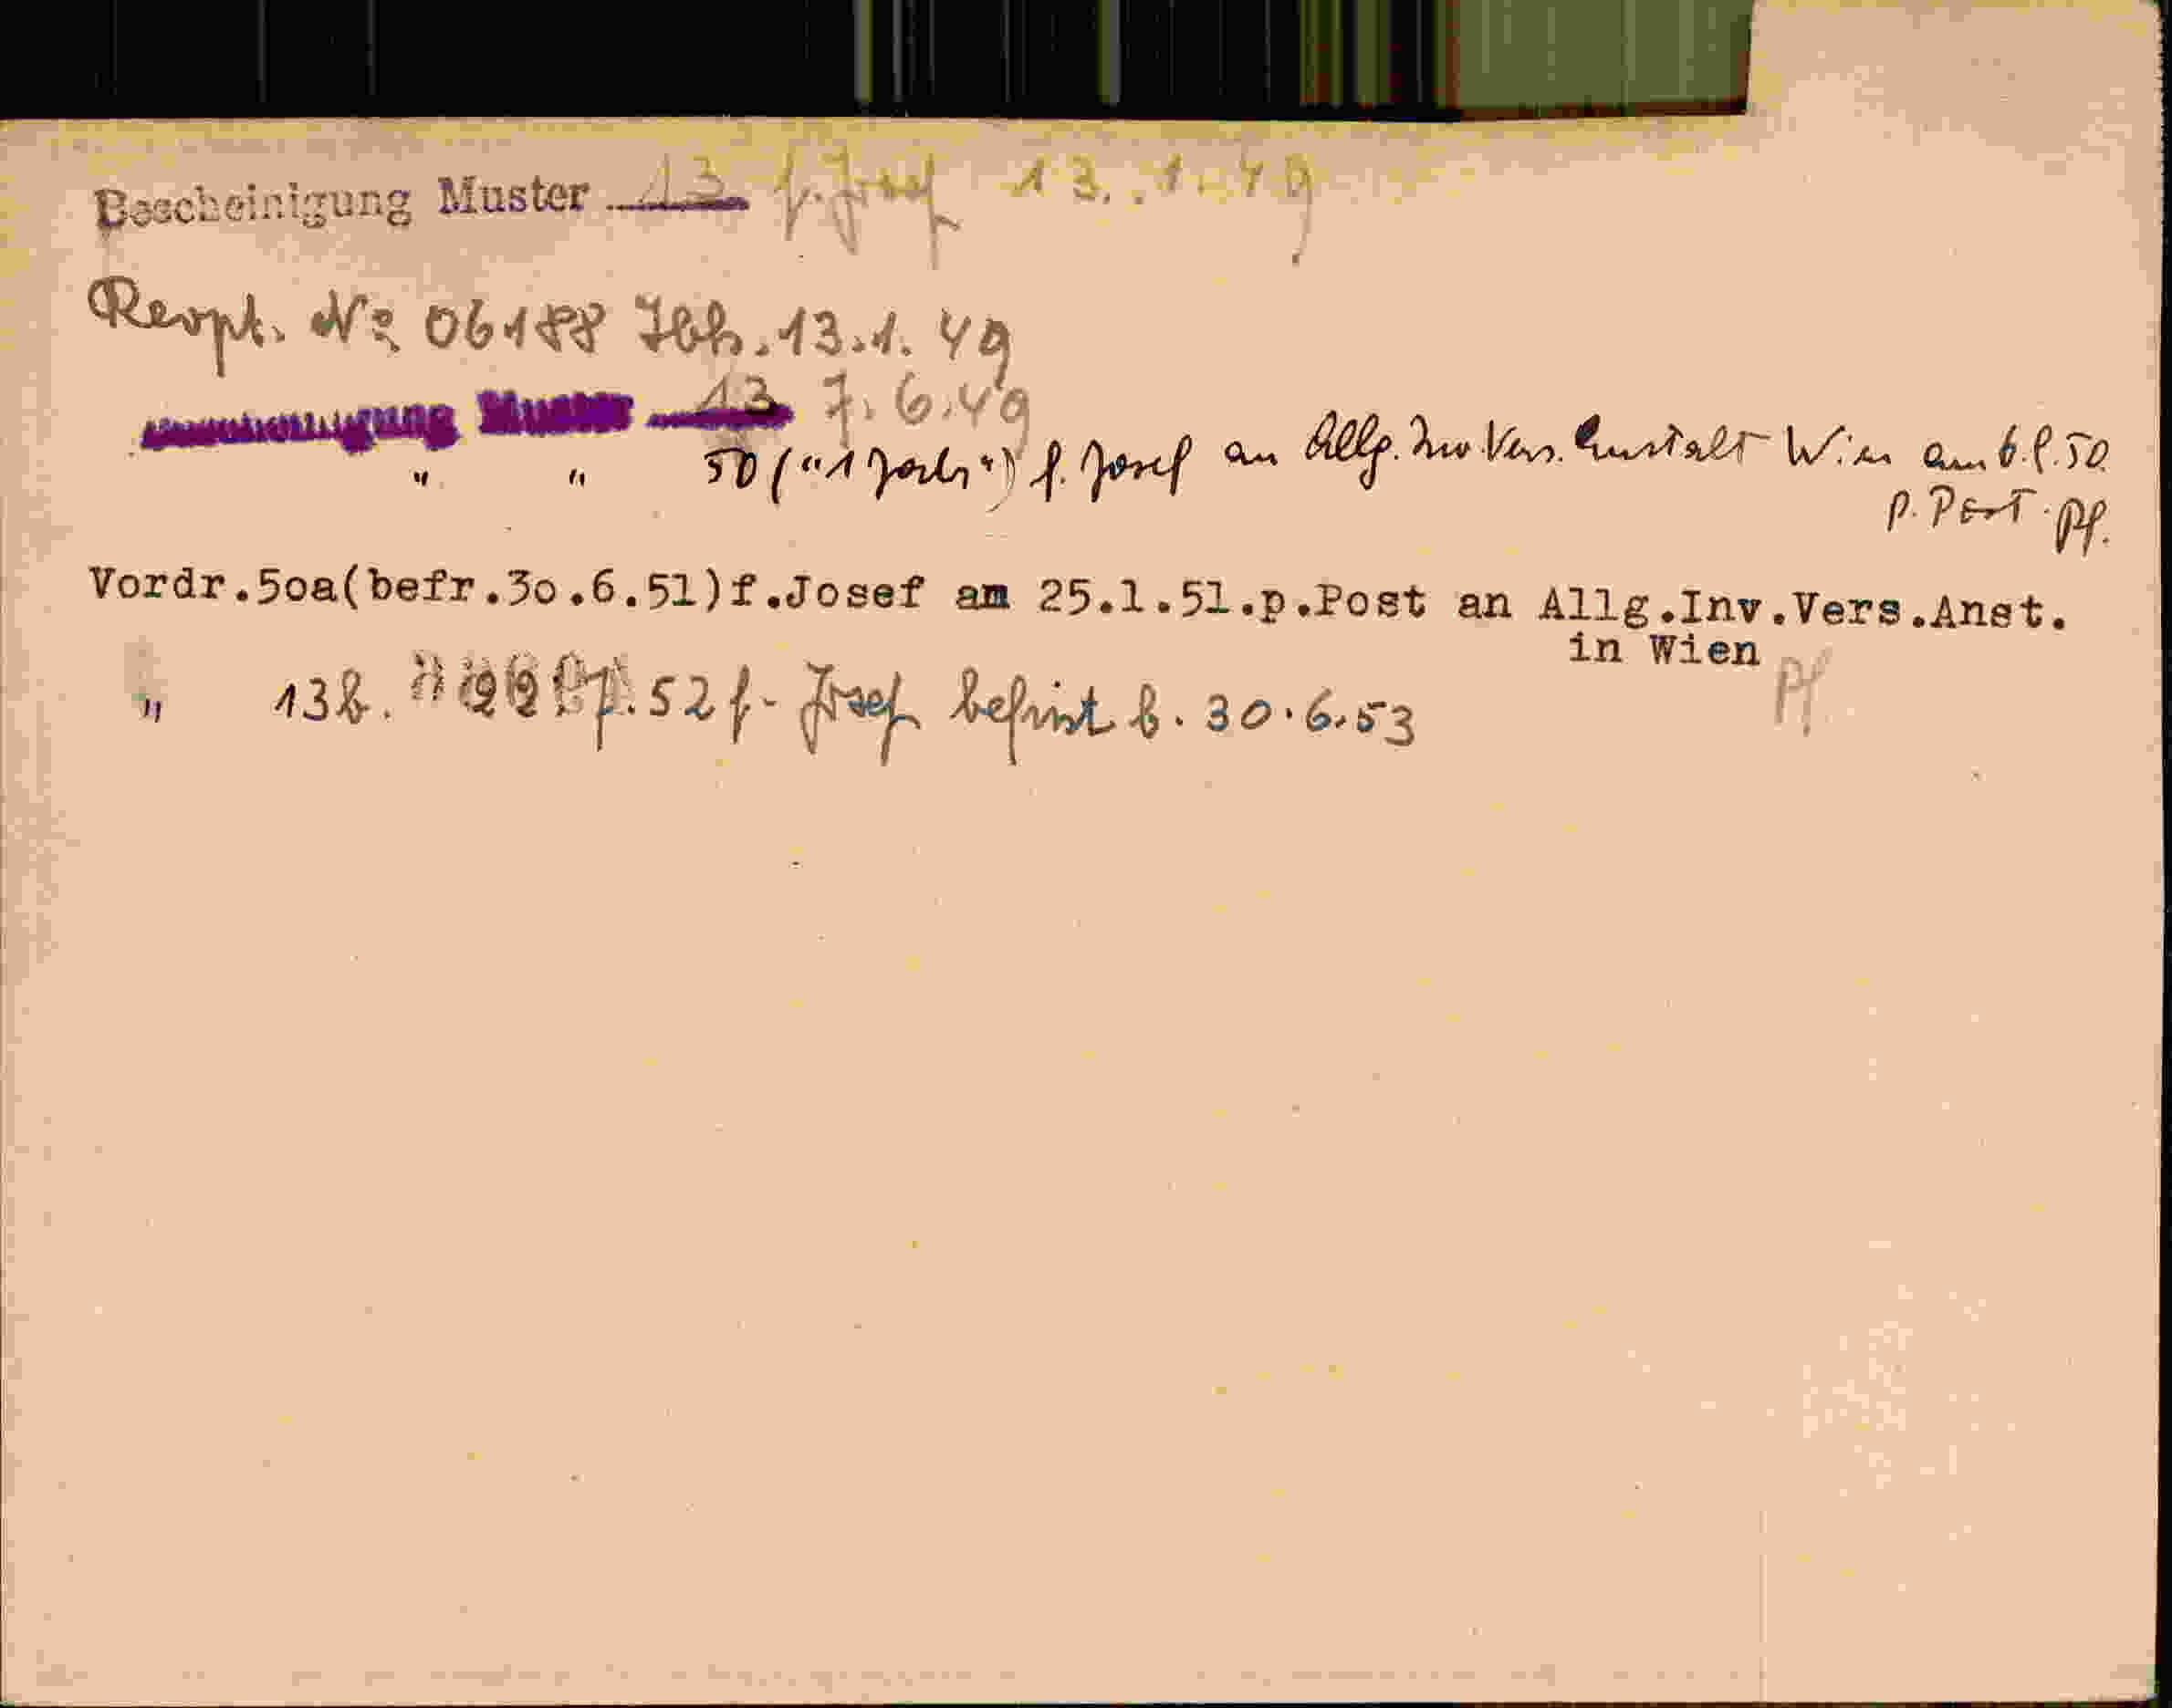 Bescheinigung Muster 13 f. Josef 13.1.49
Revpt. № 06188 Ibk. 13.1.49
Bescheinigung Muster 13 7.6.49
" " 50 ("1 Jahr") f. Josef an Allg. Inv. Vers. Anstalt Wien am
p. Post. Pf.
Vordr.5oa(befr.3o.6.51)f.Josef am 25.1.51.p.Post an Allg.Inv.Vers.Anst.
in Wien Pf
" 13b. 52 f. Josef befrist b. 30.6.53